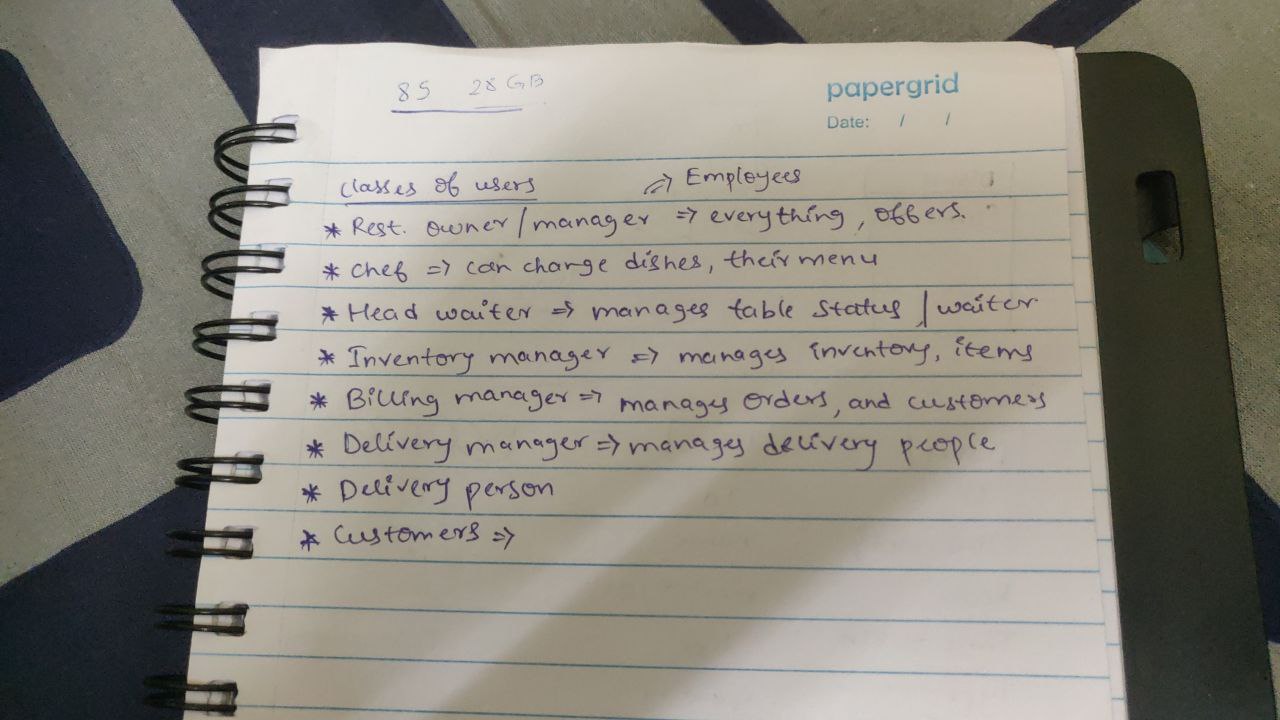 85 28 GB
papergrid
Date: / /
Classes of users => Employees
* Rest. owner/manager => everything, offers.
* Chef => can change dishes, their menu
* Head waiter => manages table status / waiter
* Inventory manager => manages inventory, items
* Billing manager => manages orders, and customers
* Delivery manager => manages delivery people
* Delivery person
* Customers =>